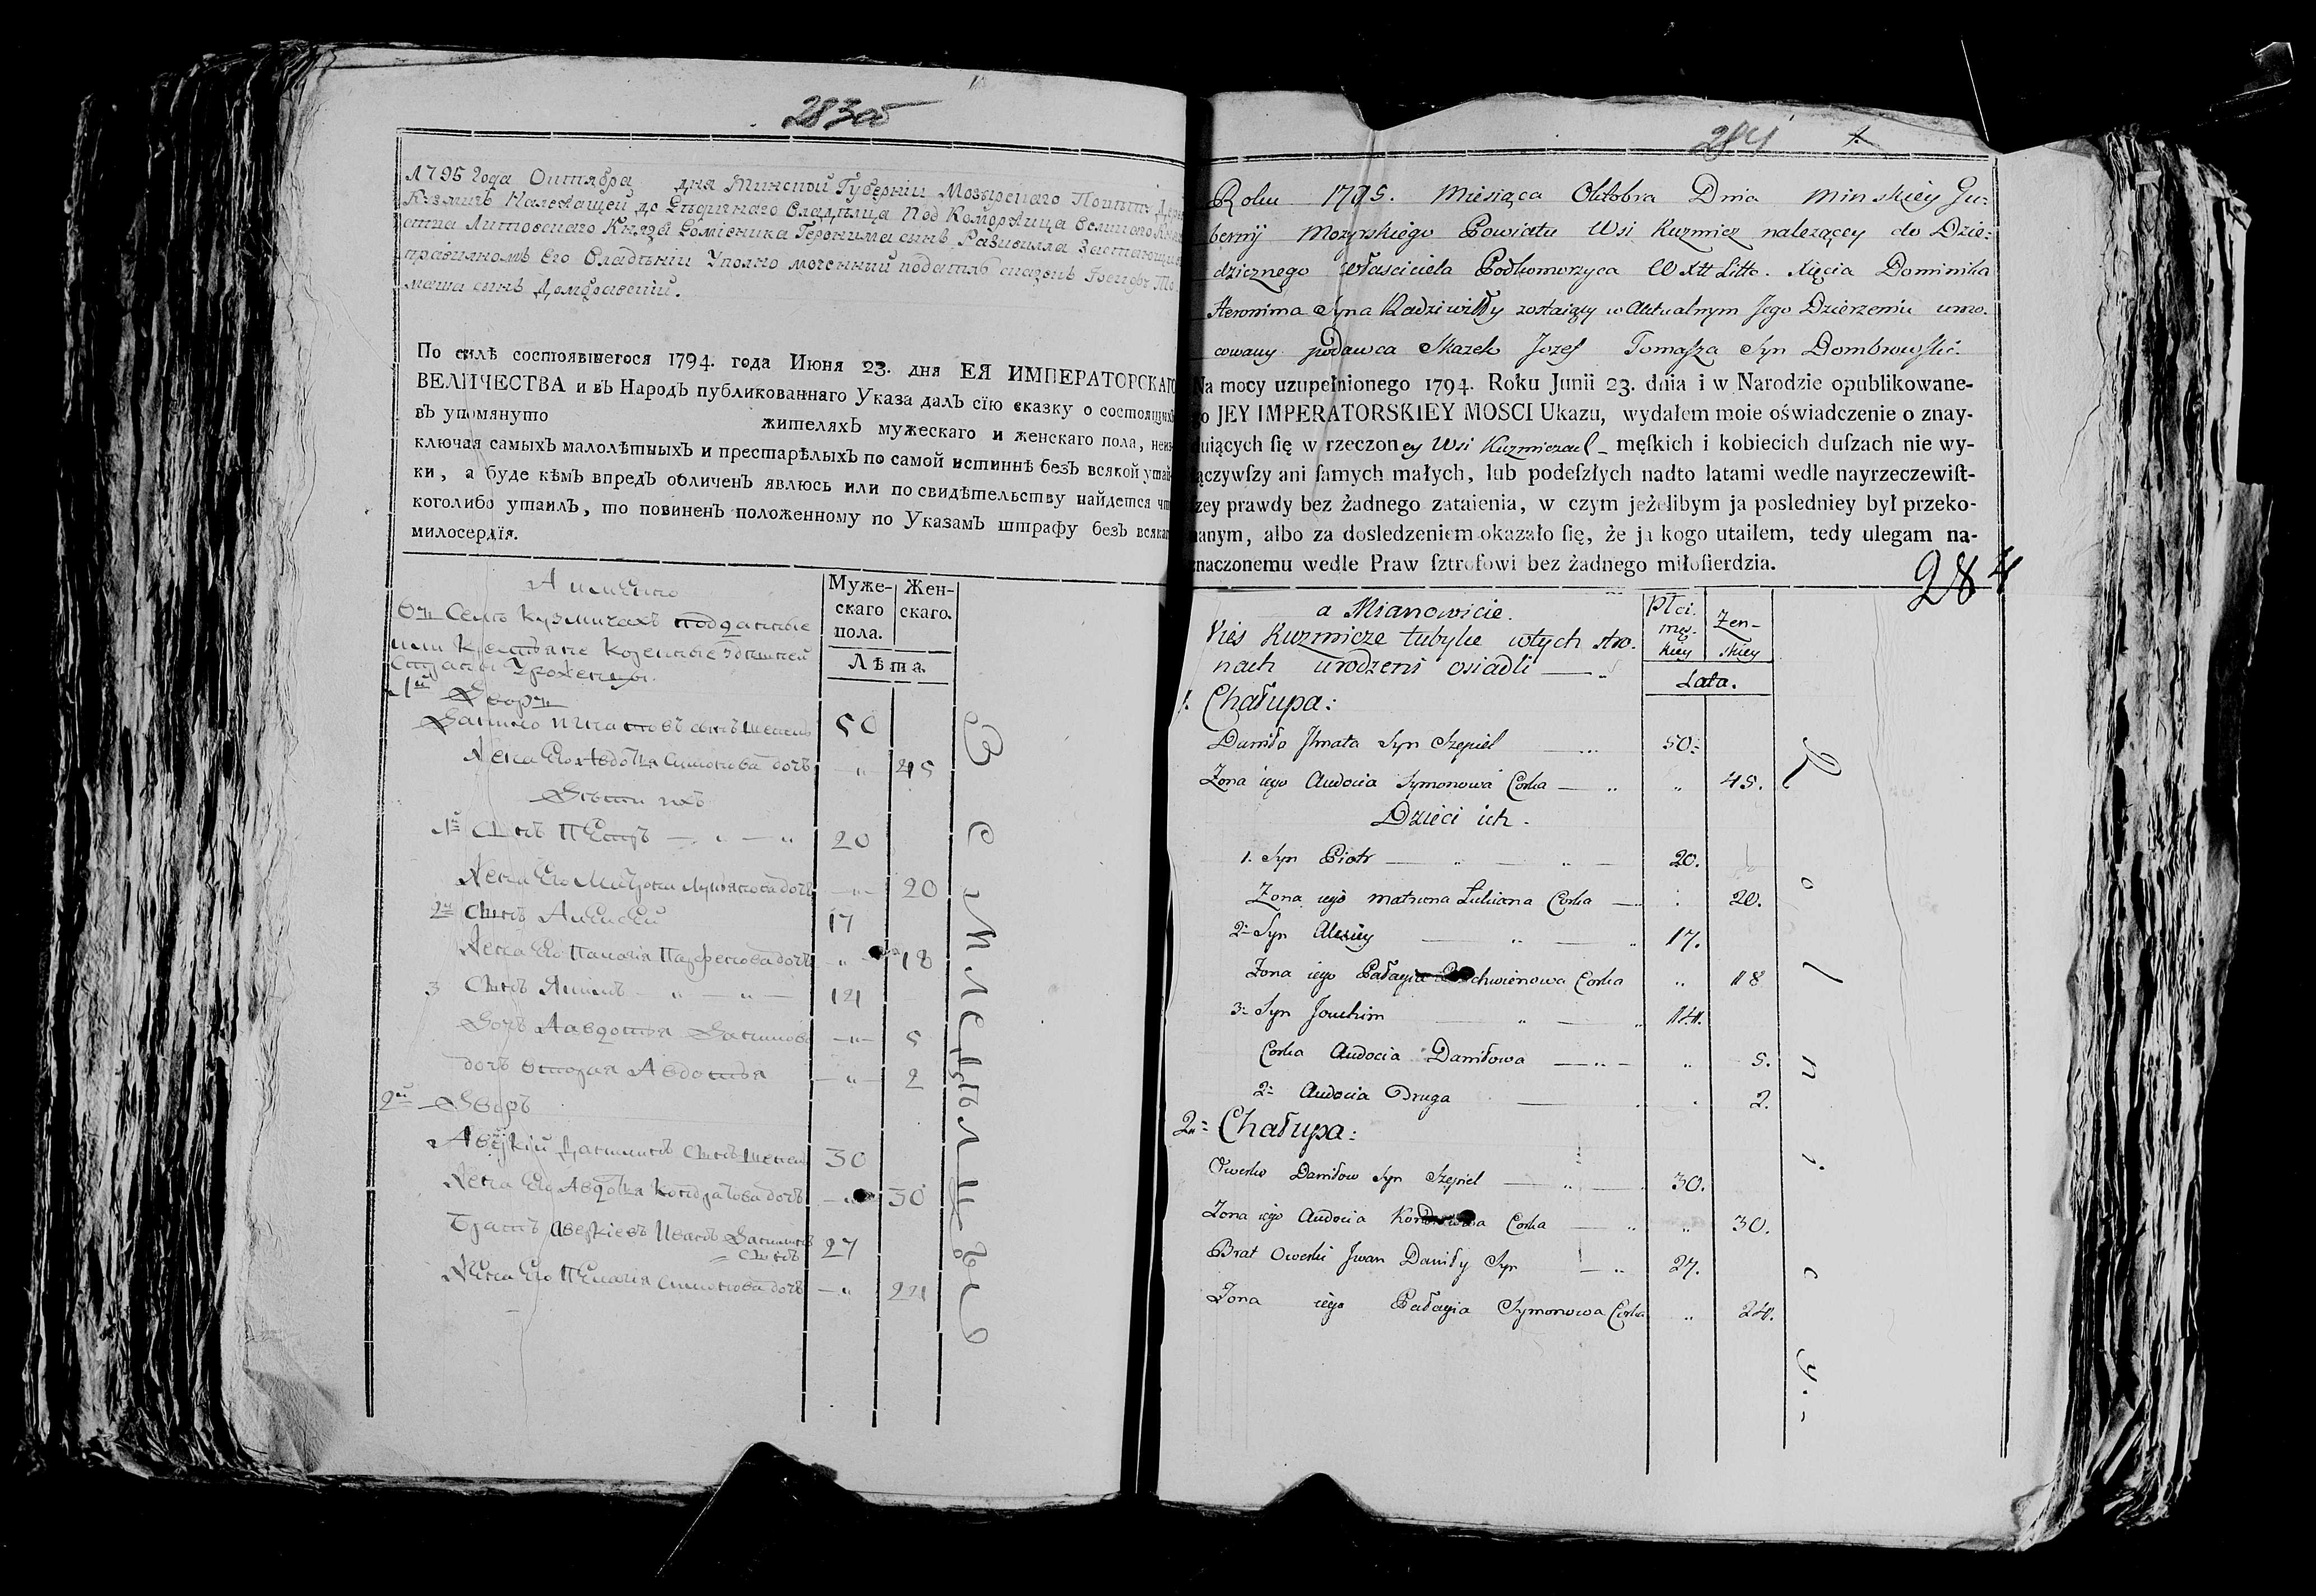 283об
1795 Года Октября дня Минской Губерніи Мозырскаго
Кузмичь Належащей до Владѣльца Под Коморжица Великаго
Литовского Князя Доминика Геронима сынъ Радзивилла
Его Владѣніи Уполно моченный податль сказокъ
маша сынъ Домбровскій.
По силѣ состоявшегося 1794. года Июня 23. дня ЕЯ ИМПЕРАТОРСКАГО
ВЕЛИЧЕСТВА и въ Народъ публикованнаго Указа далъ сїю сказку о состоящихъ
въ упомянуто жителяхъ мужескаго и женскаго пола, неис
ключая самыхъ малолѣтныхъ и престарѣлыхъ по самой истиннѣ безъ всякой утай
ки, а буде кѣмъ впредъ обличенъ явлюсь или по свидѣтельству найдется что
коголибо утаилъ, то повиненъ положенному по Указамъ штрафу безъ всякаго
милосердїя.
А имѣнно
Селѣ Кузмичахъ подданные
или Крестьяне Коренные здѣшней
Страны Уроженцы.
Муже-
скаго
пола.
Жен-
скаго.
Лѣта.
1й Дворъ
Данило Игнатовъ сынъ Шепель 50
Жена Его Авдотья Симонова дочь 45
Дѣти ихъ
1й Сынъ Петръ 20
Жена Его Матрона Лукянова дочь 20
2й Сынъ Алексей 17
Жена Его Палагія дочь 18
3 Сынъ Якимъ 14
Дочь Авдотья Данилова 5
дочь вторая Авдотья 2
2й Дворъ
Аверкій Даниловъ Сынъ Шепель 30
Жена Его Авдотья Кондратова дочь 30
Братъ Аверкіевъ Иванъ Даниловъ 27
Сынъ
Жена Его Пелагія Симонова дочь 24
Земледѣльцы
284 1.
Roku 1795. Miesiąca Oktobra Dnia Minskiey Gu=
bernij Mozyrskiego Powiatu Wsi Kuzmicz należącey do Dzie=
dzicznego Własciciela Podkomorzyca W X Litto. Xięcia Dominika
Heronima Syna Radziwiłły zostaiący w Aktualnym Jego Dzierzeniu umo.
cowany podawca Skazek Jozef Tomasza Syn Dombrowski.
Na mocy uzupełnionego 1794. Roku Junii 23. dnia i w Narodzie opublikowane-
go JEY IMPERATORSKIEY MOSCI Ukazu, wydałem moie oświadczenie o znay-
duiących ſię w rzeczoney Wsi Kuzmiczach męſkich i kobiecich duſzach nie wy-
łączywſzy ani ſamych małych, lub podeſzłych nadto latami wedle nayrzeczewiſt-
ſzey prawdy bez żadnego zataienia, w czym jeżelibym ja posledniey był przeko-
nanym, albo za dosledzeniem okazało ſię, że ja kogo utaiłem, tedy ulegam na-
znaczonemu wedle Praw ſztrofowi bez żadnego miłoſierdzia.
284
a Mianowicie.
Wies Kuzmicze tubylce wtych stro.
nach urodzeni osiadli
Płci.
męz-
kiey
Żen-
skiey
Lata.
1. Chałupa:
Daniło Jhnata Syn Szepiel 50.
Zona iego Audocia Symonowa Corka 45.
Dzieci ich.
1. Syn Piotr 20.
Zona iego Matrona Lukiana Corka 20.
2= Syn Alexiey 17.
Zona iego Pałagia Corka 18
3= Syn Joachim 14.
Corka Audocia Daniłowa 5.
2= Audocia Druga 2.
2= Chałupa:
Owerko Daniłow Syn Szepiel 30.
Zona iego Audocia Corka 30.
Brat Owerki Jwan Daniły Syn 27.
Zona iego Pałagia Symonowa Corka 24.
Rolnicy.